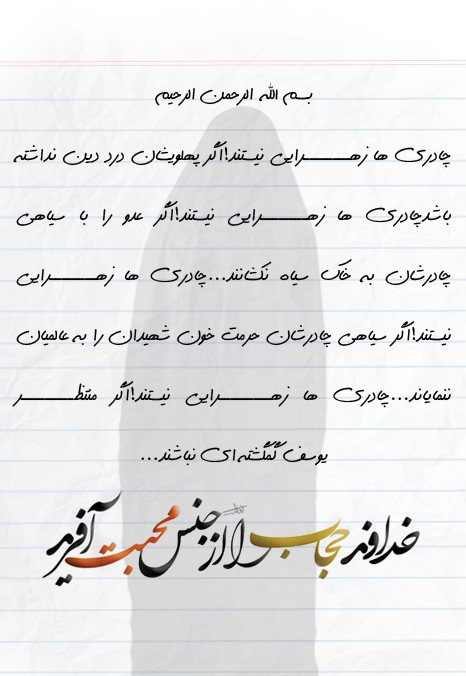 بسم الله الرحمن الرحیم
چادری ها زهــــرایی نیستند!اگر پهلویشان درد دین نداشته
باشدچادری ها زهــــرایی نیستند!اگر عدو را با سیاهی
چادرشان به خاک سیاه نکشانند...چادری ها زهــــرایی
نیستند!اگر سیاهی چادرشان حرمت خون شهیدان را به عالمیان
ننمایاند...چادری ها زهــــرایی نیستند!اگر منتظــــر
یوسف گمگشته‌ای نباشند...
خداوند حجاب را از جنس محبت آفرید